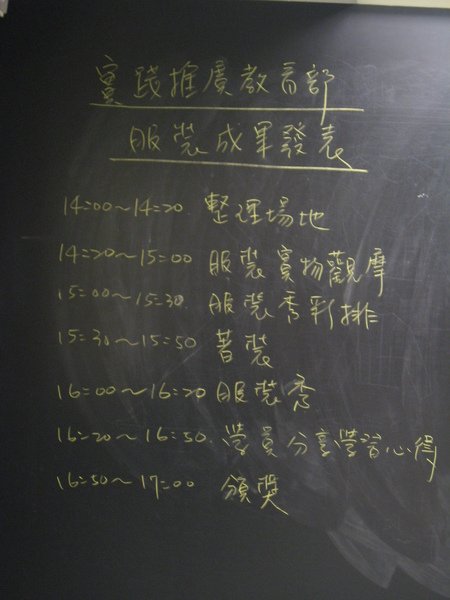 實踐推廣教育部
服裝成果發表
14:00~14:20 整理場地
14:20~15:00 服裝實物觀摩
15:00~15:30 服裝秀彩排
15:30~15:50 著裝
16:00~16:20 服裝秀
16:20~16:50 學員分享學習心得
16:50~17:00 頒獎